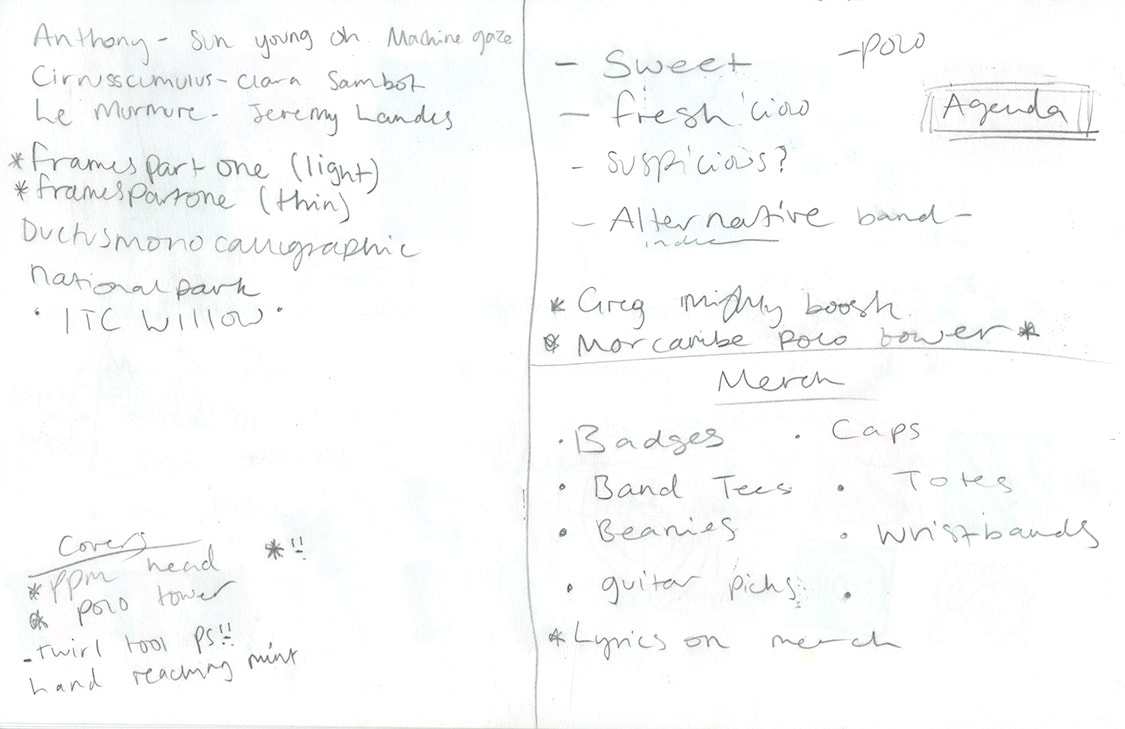 Anthony - Sun young oh. Machine gaze
Cirrusscumulus - Clara Sambot
Le Murmure - Jeremy Landes
*framespart one (light)
*framespartone (thin)
Ductusmono calligraphic
national park
• ITC Willow •
Covers
*ppm head *!!
* polo tower
- twirl tool PS!!
hand reaching mint
- Sweet
- polo
- fresh 'ciao
Agenda
- suspicious?
- Alternative band -
indie
* Greg mighly boosh
* Morcambe polo tower *
Merch
• Badges
• Caps
• Band Tees
• Totes
• Beanies
• wristbands
• guitar picks
•
*Lyrics on merch